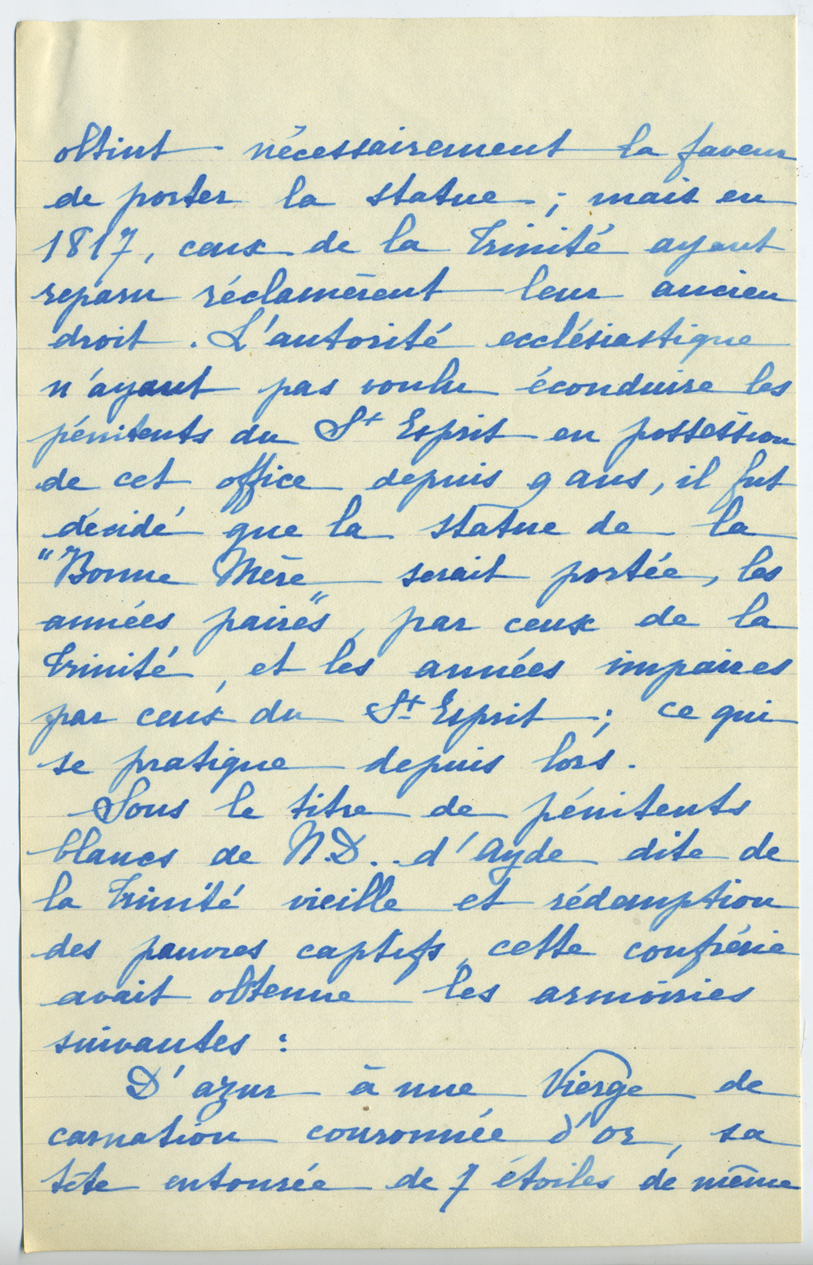 obtint nécessairement la faveur
de porter la statue ; mais en
1817, ceux de la Trinité ayant
reparu réclamèrent leur ancien
droit. L'autorité ecclésiastique
n'ayant pas voulu éconduire les
pénitents du St Esprit en possession
de cet office depuis 9 ans, il fut
décidé que la statue de la
"Bonne Mère serait portée, les
années paires", par ceux de la
Trinité, et les années impaires
par ceux du St Esprit ; ce qui
se pratique depuis lors.
Sous le titre de pénitents
blancs de N.D. d'Ayde dite de
la Trinité vieille et rédemption
des pauvres captifs, cette confrérie
avait obtenue les armoiries
suivantes :
D'azur à une Vierge de
carnation couronnée d'or, sa
tête entourée de 7 étoiles de même